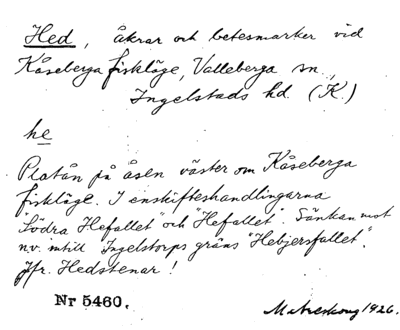 Hed, åkrar och betesmarker vid
Kåseberga fiskläge, Valleberga sn.,
Ingelstads hd. (K.)
he
Platån på åsen väster om Kåseberga
fiskläge. I enskifteshandlingarna
"Södra Hefallet" och "Hefallet". Sänkan mot
nv. intill Ingelstorps gräns "Hebjersfallet".
Jfr. Hedstenar!
Nr 5460.
1926.